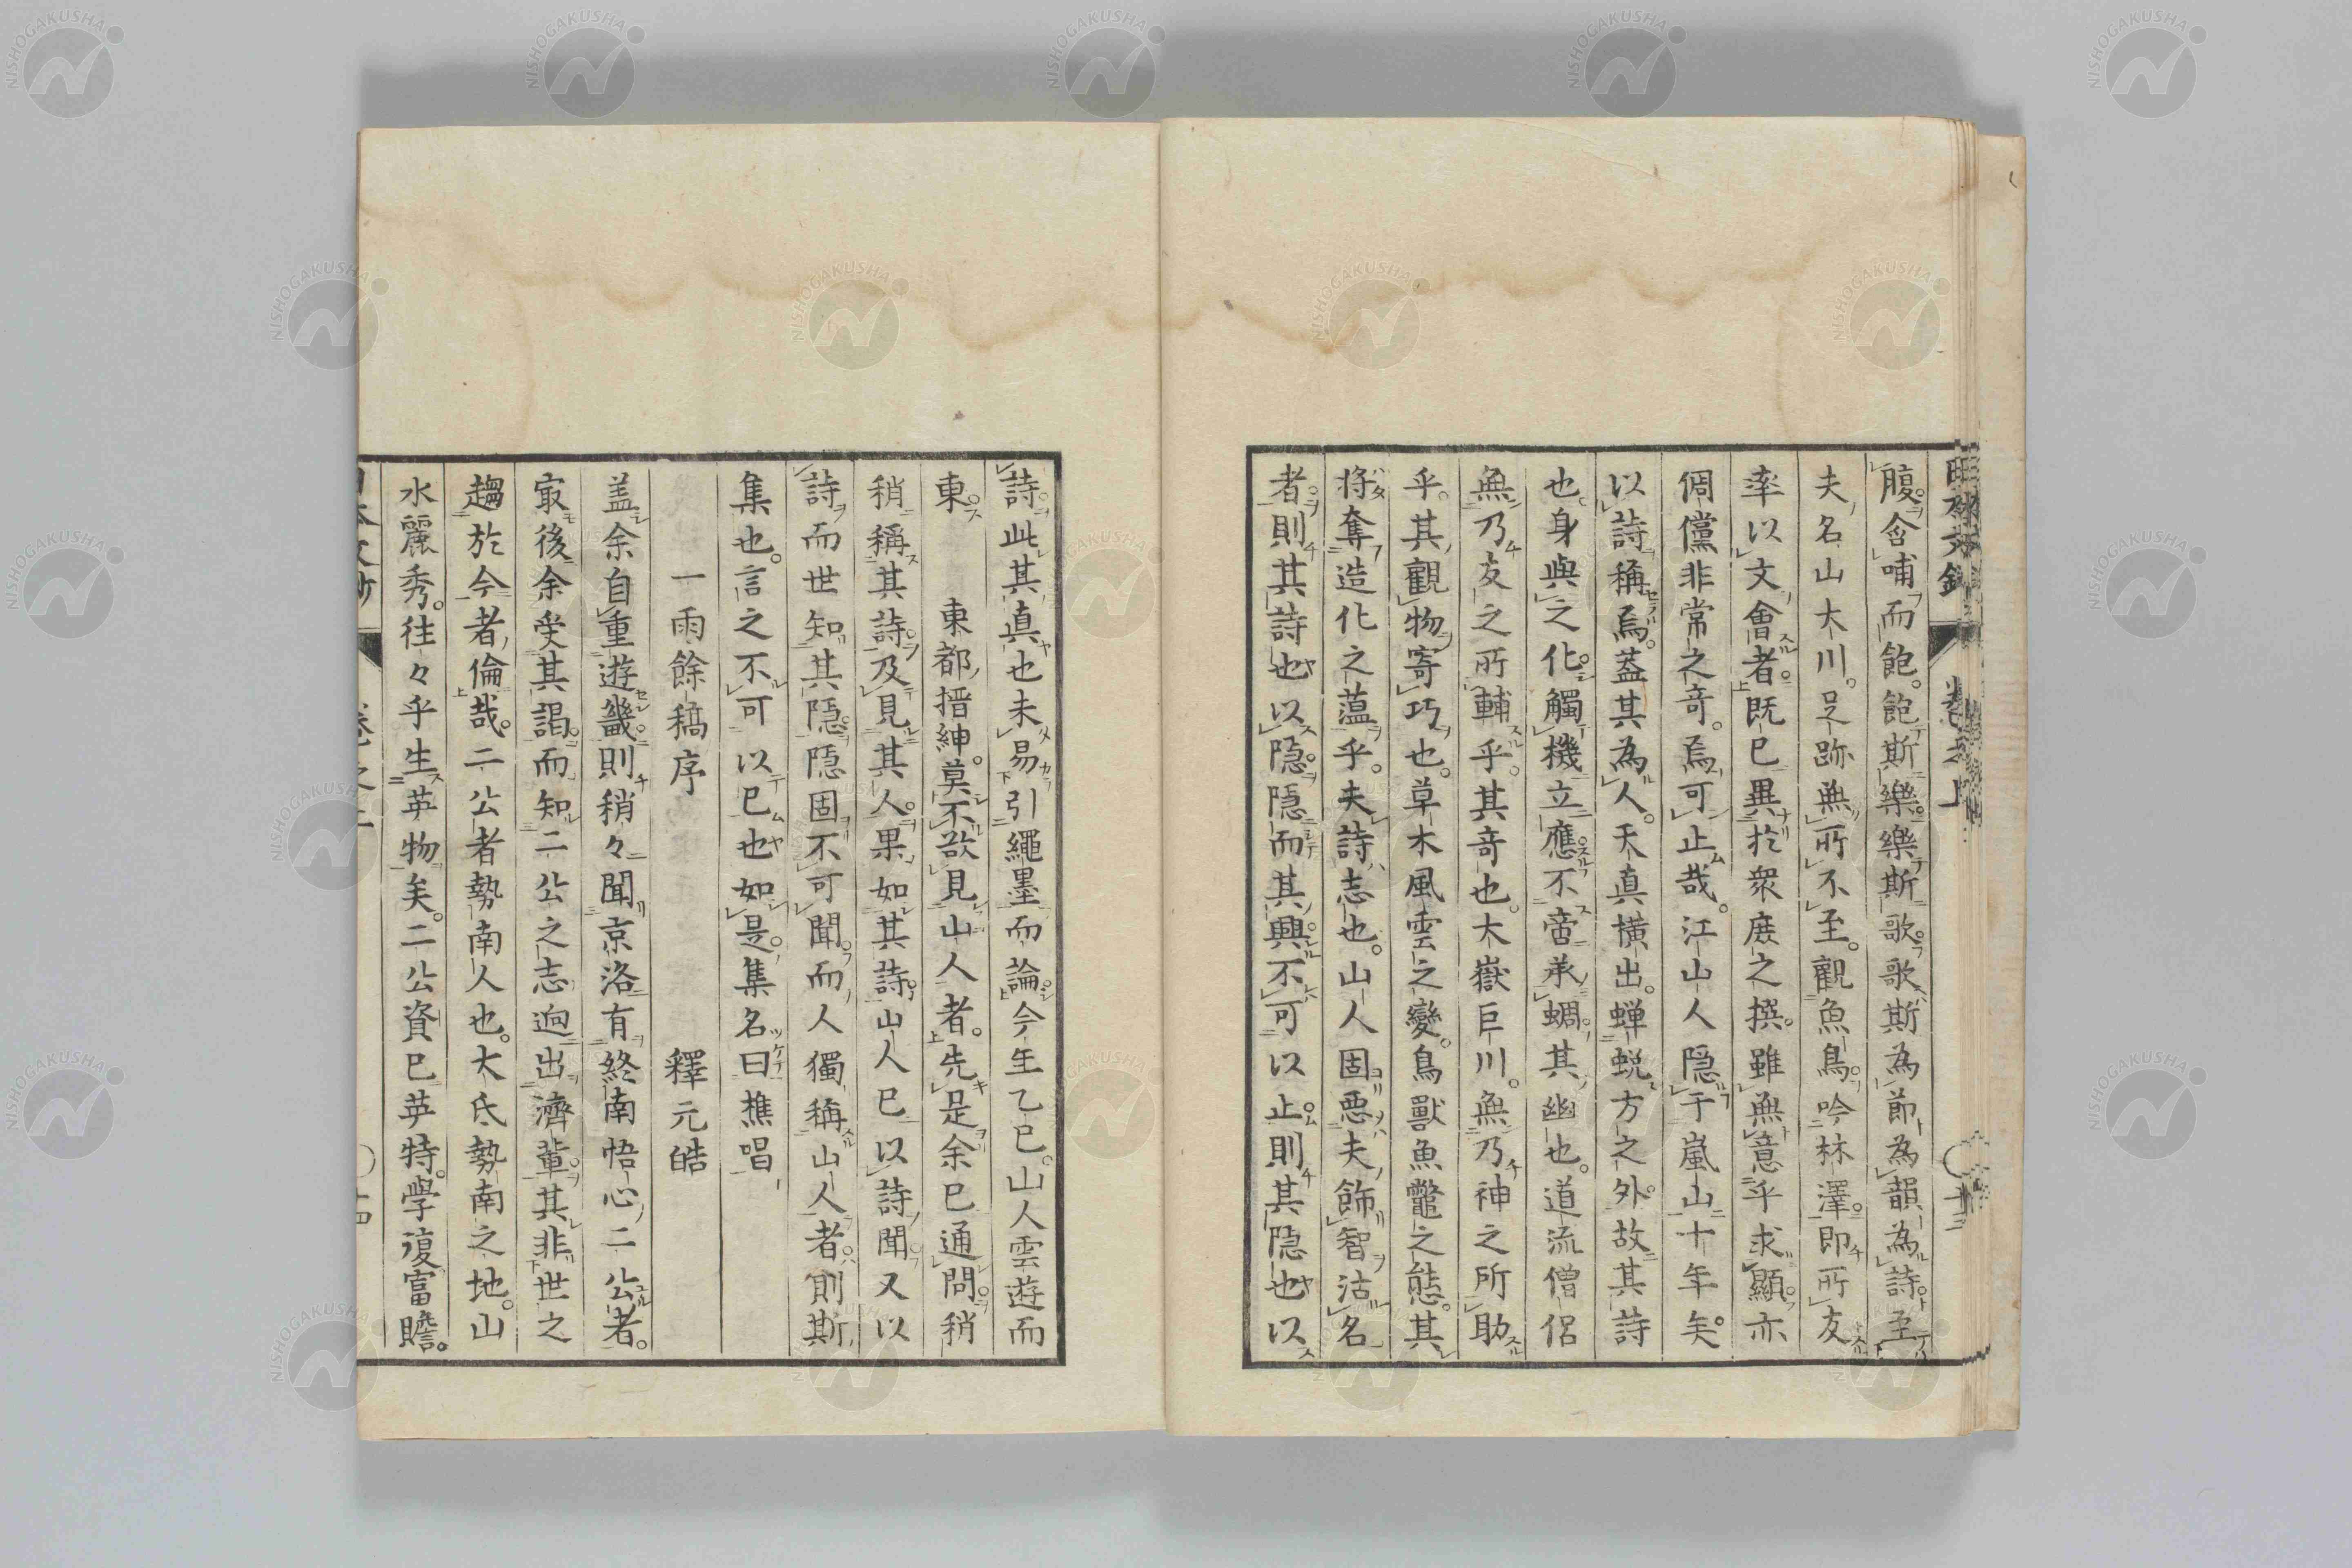 腹含哺而飽。飽斯樂。樂斯歌。歌斯為節為韻為詩。至
夫名山大川。足跡無所不至。觀魚鳥。吟林澤。即所友
率以文會者。既已異於眾庶之撰。雖無意乎求顯。亦
倜儻非常之奇。焉可止哉。江山人隱于嵐山十年矣。
以詩稱焉。蓋其為人。天真橫出。蟬蛻方之外。故其詩
也。身與之化。觸機立應。不啻承蜩。其幽也。道流僧侶
無乃友之所輔乎。其奇也。大嶽巨川。無乃神之所助
乎。其觀物寄巧也。草木風雲之變。鳥獸魚鼈之態。其
將奪造化之蘊乎。夫詩志也。山人固惡夫飾智沽名
者。則其詩也以隱。隱而其興不可以止。則其隱也以
詩。此其真也未易引繩墨而論。今年乙巳。山人雲遊而
東
東都搢紳。莫不欲見山人者。先是余已通問。稍
稍稱其詩。及見其人。果如其詩。山人已以詩聞。又以
詩而世知其隱。隱固不可聞。而人獨稱山人者。則斯
集也。言之不可以已也如是。集名曰樵唱
一雨餘稿序
釋元皓
蓋余自重遊畿。則稍々聞京洛有終南悟心二公者。
㝡後余受其謁。而知二公之志逈出濟輩。其非世之
趨於今者倫哉。二公者勢南人也。大氐勢南之地。山
水麗秀。往々乎生英物矣。二公資已英特。學復富贍。